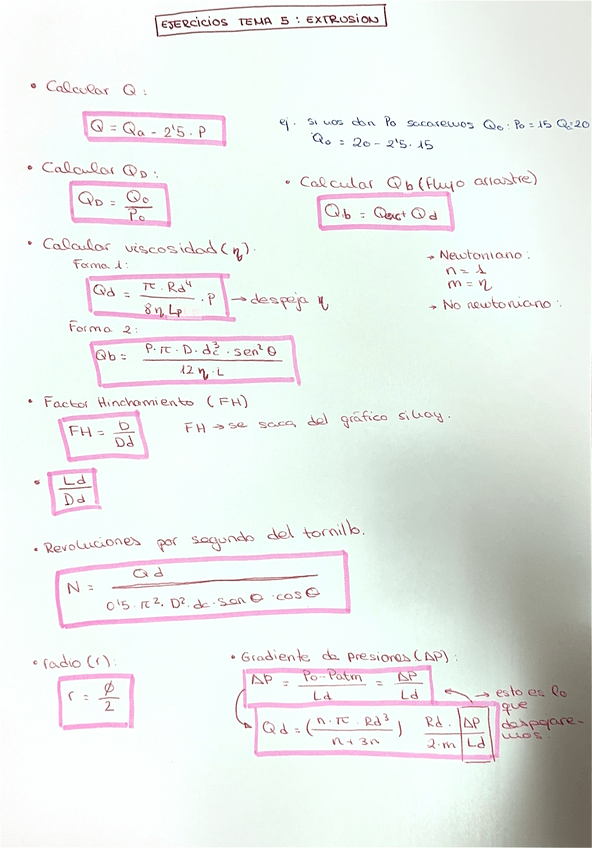 EJERCICIOS TEMA 5 : EXTRUSION
• Calcular Q :
Q = Qa - 2'5 . P
ej. si nos dan Po sacaremos Qo : Po = 15 Qo=20
Qo = 20 - 2'5 . 15
• Calcular QD :
QD = Qo / Po
• Calcular Qb (flujo arrastre)
Qb = Qexc + Qd
• Calcular viscosidad (η).
Forma 1:
Qd = π . Rd⁴ / 8 η Lp . P → despeja η
→ Newtoniano :
n = 1
m = η
→ No newtoniano :
Forma 2:
Qb = P . π . D . dc³ . sen² θ / 12 η . L
• Factor Hinchamiento (FH)
FH = D / Dd
FH → se saca del gráfico si hay.
• Ld / Dd
• Revoluciones por segundo del tornillo.
N = Qd / 0'5 . π² . D² . dc . sen θ . cos θ
• radio (r) :
r = ϕ / 2
• Gradiente de presiones (ΔP) :
ΔP = Po - Patm / Ld = ΔP / Ld
→ esto es lo que despejaremos.
Qd = (n . π . Rd³ / n + 3n) Rd . ΔP / 2 . m Ld